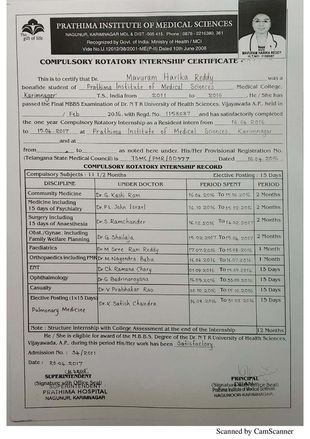 The gift of life
PRATHIMA INSTITUTE OF MEDICAL SCIENCES
NAGUNUR, KARIMNAGAR MDL & DIST.-505 415. Phone : 0878 - 2216380, 381
Recognized by Govt. of India, Ministry of Health / MCI
COMPULSORY ROTATORY INTERNSHIP CERTIFICATE
This is to certify that Dr. Mavuram Harika Reddy was a
bonafide student of Prathima Institute of Medical Sciences Medical College,
Karimnagar T.S., India from 2011 to 2016. He / She has
passed the Final MBBS Examination of Dr. N T R University of Health Sciences, Vijayawada A.P., held in
/ Feb 2016, with Regd. No. and has satisfactorily completed
the one year Compulsory Rotatory Internship as a Resident intern from 16.04.2016
to 15.04.2017 at Prathima Institute of Medical Sciences, Karimnagar
and at
from to as noted here under. His/Her Provisional Registration No.
(Telangana State Medical Council) is Dated
COMPULSORY ROTATORY INTERNSHIP RECORD
Compulsory Subjects : 11 1/2 Months Elective Posting : 15 Days
DISCIPLINE UNDER DOCTOR PERIOD SPENT PERIOD
Community Medicine Dr. G. Kashi Ram 2 Months
Medicine including
15 days of Psychiatry Dr. P.L. John Israel 2 Months
Surgery including
15 days of Anaesthesia Dr. S. Ramchander 2 Months
Obst./Gynae. Including
Family Welfare Planning Dr. G. Shailaja 2 Months
Paediatrics Dr. M. Sree Ram Reddy 1 Month
Orthopaedics including PMR Dr. M. Nagendra Babu 1 Month
ENT Dr. Ch. Ramana Chary 15 Days
Ophthalmology Dr. G. Badrinarayana 15 Days
Casualty Dr. V. Prabhakar Rao 15 Days
Elective Posting (1x15 Days)
Pulmonary Medicine Dr. K. Satish Chandra 15 Days
Note : Structure Internship with College Assessment at the end of the Internship 12 Months
He / She is eligible for award of the M.B.B.S. Degree of the Dr. N T R University of Health Sciences,
Vijayawada, A.P. during this period His/Her work has been Satisfactory
Admission No. : 34/2011
Date :
SUPERINTENDENT
(Signature with Office Seal)
SUPERINTENDENT
PRATHIMA HOSPITAL
NAGUNUR, KARIMNAGAR
PRINCIPAL
Prathima Institute of Medical Sciences
NAGUNUR, KARIMNAGAR.
Scanned by CamScanner